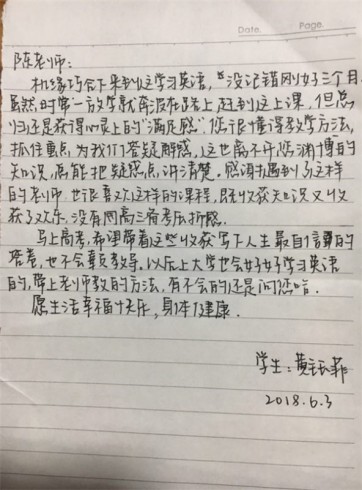 Date. Page.
陈老师:
机缘巧合下来到这学习英语,没记错刚好三个月
虽然时常一放学就奔波在路上赶到这上课,但总
归还是获得心灵上的“满足感”.您很懂得教学方法,
抓住重点,为我们答疑解惑,这也离不开您渊博的
知识,总能把疑惑点,讲清楚。感谢遇到了这样
的老师,也很喜欢这样的课程,既收获知识又收
获欢乐,没有周高三备考压折感.
马上高考,希望带着这些收获写下人生最自信的
答卷,也不会辜负教导.以后上大学也会好好学习英语
的,带上老师教的方法,有不会的还是问您哈.
愿生活幸福快乐,身体健康.
学生:黄钰菲
2018.6.3